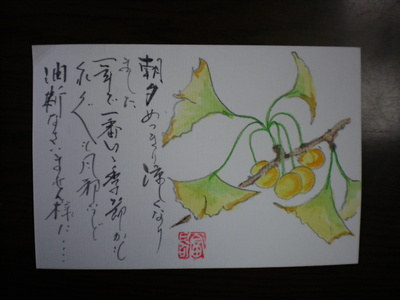 朝夕めっきり涼しくなり
ました
一年で一番いい季節かも
くれぐれも風邪など
油断なさいませぬ様に‥‥